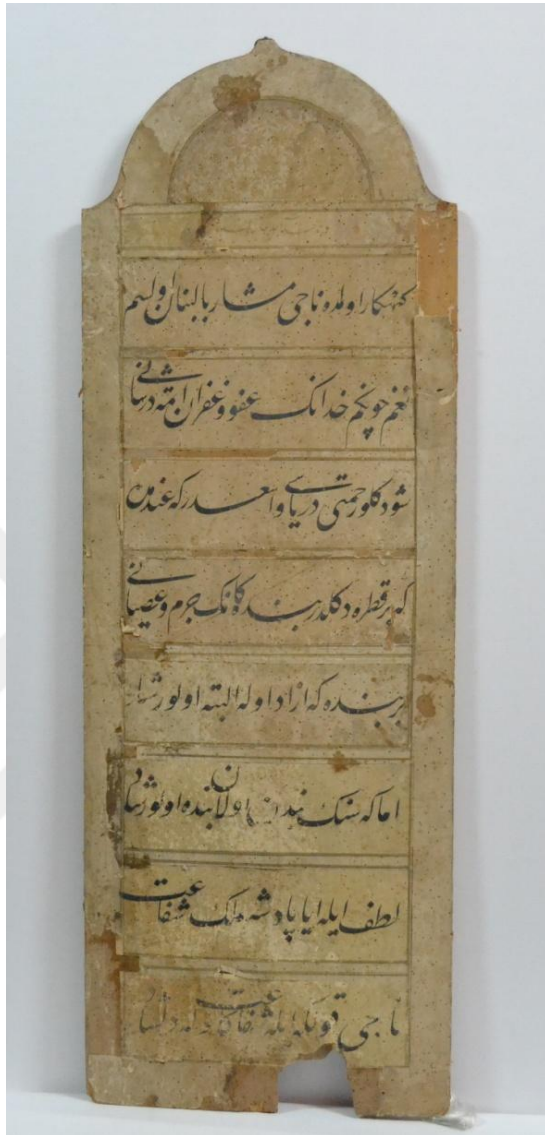 كنهكار اولده ناجى مشار بالبنان اولسم
نه غم چونكم خدانك عفو و غفرانه در شانى
شو دكلو رحمتى درياى واسعدركه عندمده
كه بر قطره دكلدر بنده كانك جرم و عصيانى
بر بنده كه ازاد اوله البته اولور شاد
اما كه سنك بندن اولان بنده اولور شاد
لطف ايله ايا پادشه ملك شفاعت
ناجى قولكه ايله شفاعت